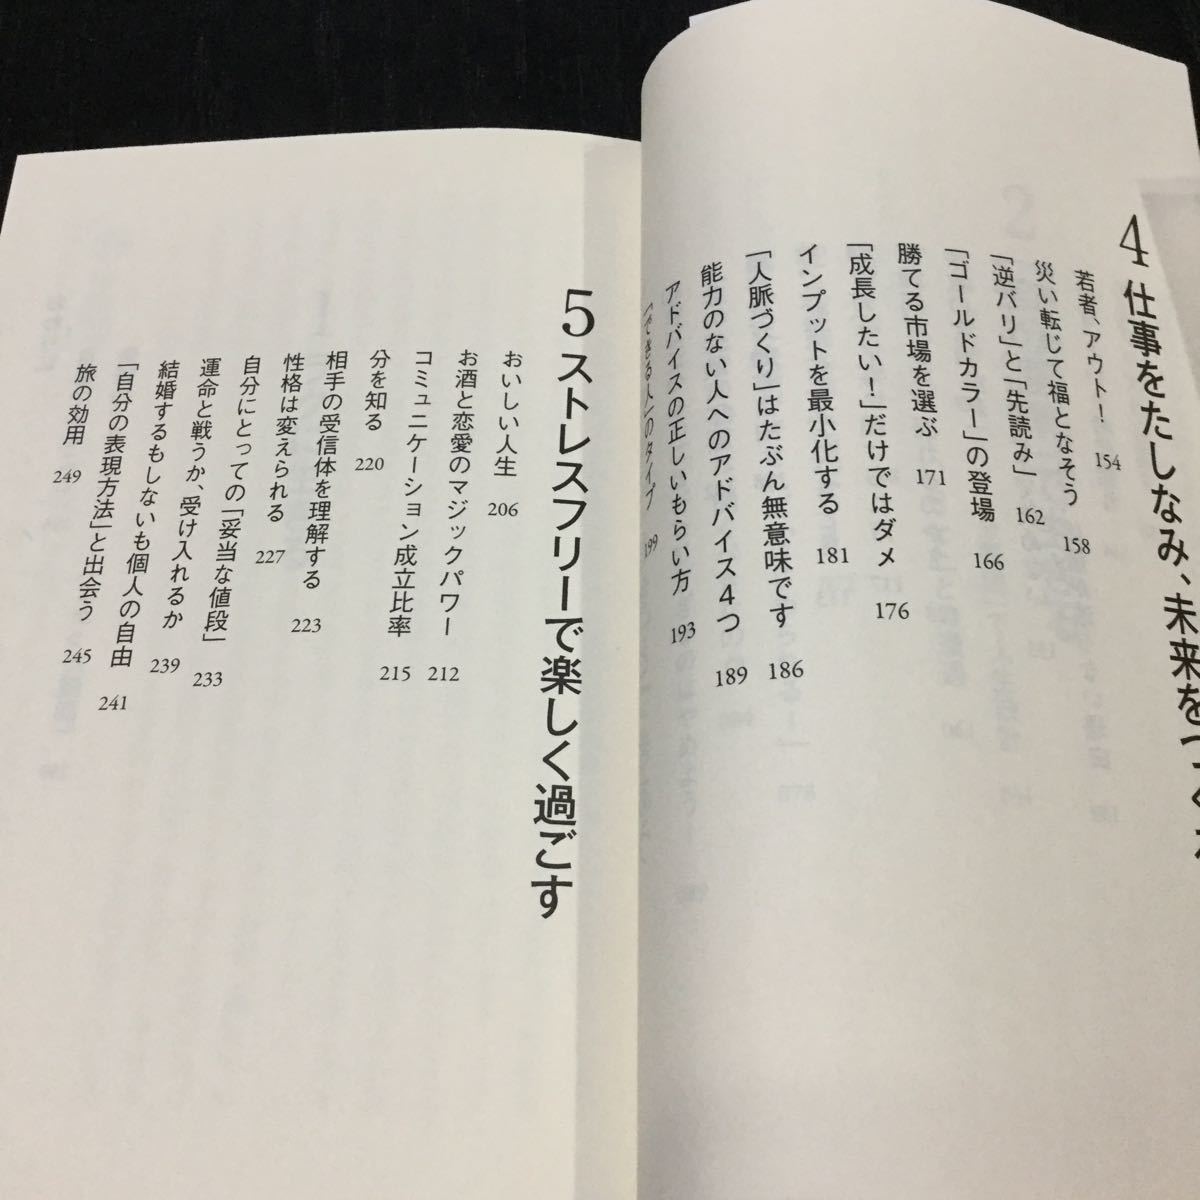 4 仕事をたしなみ、未来をつく
若者、アウト! 154
災い転じて福となそう 158
「逆バリ」と「先読み」 162
「ゴールドカラー」の登場 166
勝てる市場を選ぶ 171
「成長したい!」だけではダメ 176
インプットを最小化する 181
「人脈づくり」はたぶん無意味です 186
能力のない人へのアドバイス4つ 189
アドバイスの正しいもらい方 193
「できる人」のタイプ 199
5 ストレスフリーで楽しく過ごす
おいしい人生 206
お酒と恋愛のマジックパワー 212
コミュニケーション成立比率 215
分を知る 220
相手の受信体を理解する 223
性格は変えられる 227
自分にとっての「妥当な値段」 233
運命と戦うか、受け入れるか 239
結婚するもしないも個人の自由 241
「自分の表現方法」と出会う 245
旅の効用 249